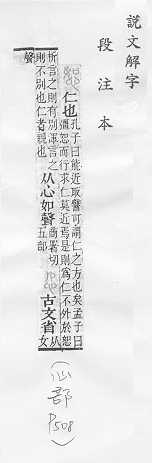 說文解字
段注本
仁也孔子曰能近取譬可謂仁之方也矣孟子曰
彊恕而行求仁莫近焉是則爲仁不外於恕
析言之則有別渾言之
則不別也仁者親也从心如聲商署切
五部古文省从女
聲
(心部
P508)